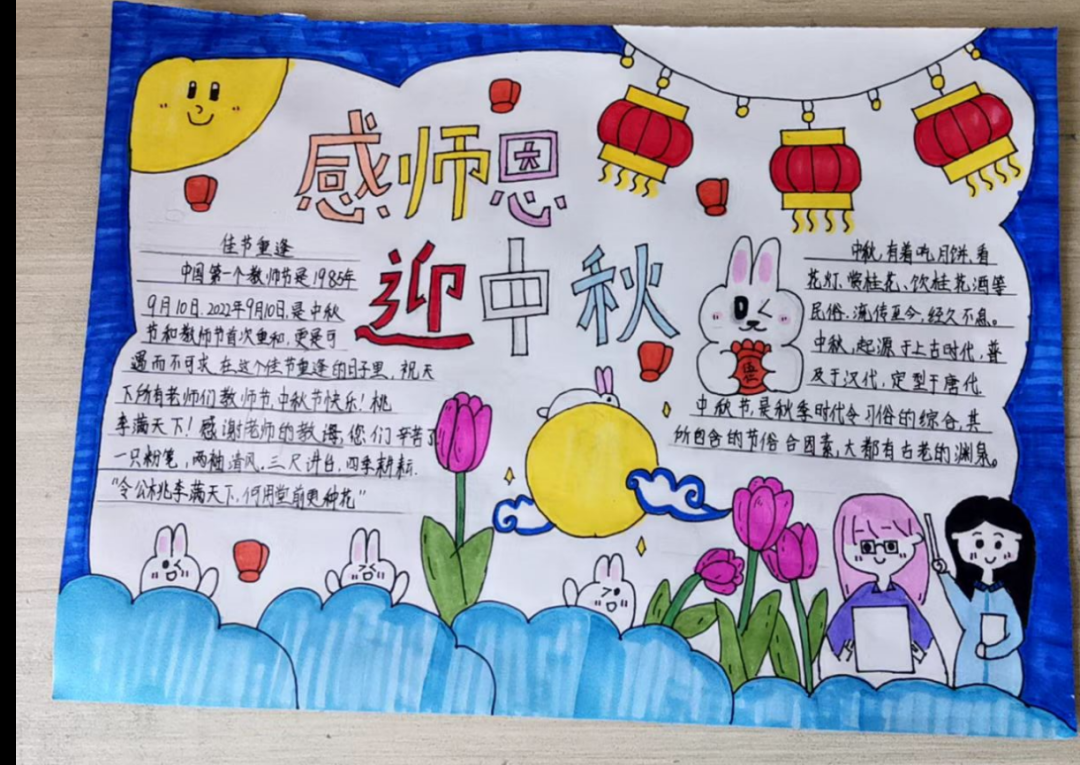 感师恩
迎中秋
佳节重逢
中国第一个教师节是1985年
9月10日.2022年9月10日,是中秋
节和教师节首次重和,更是可
遇而不可求.在这个佳节重逢的日子里,祝天
下所有老师们教师节,中秋节快乐!桃
李满天下!感谢老师的教诲,您们辛苦了
一只粉笔,两袖清风.三尺讲台.四季耕耘.
“令公桃李满天下,何用堂前更种花”
中秋,有着吃月饼、看
花灯、赏桂花、饮桂花酒等
民俗.流传至今,经久不息。
中秋,起源于上古时代,普
及于汉代,定型于唐代
中秋节,是秋季时代令习俗的综合,其
所包含的节俗合因素,大都有古老的渊泉。